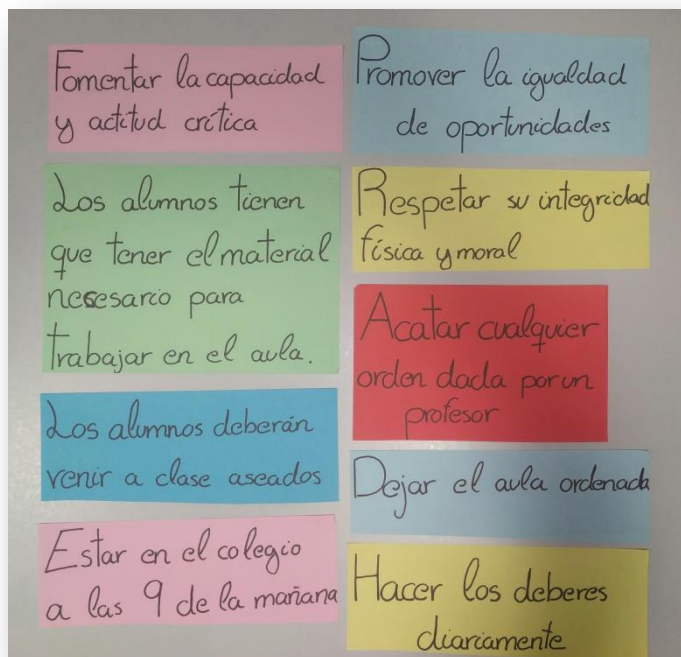 Fomentar la capacidad
y actitud crítica
Los alumnos tienen
que tener el material
nescesario para
trabajar en el aula.
Los alumnos deberán
venir a clase aseados
Estar en el colegio
a las 9 de la mañana
Promover la igualdad
de oportunidades
Respetar su integridad
física y moral
Acatar cualquier
orden dada por un
profesor
Dejar el aula ordenada
Hacer los deberes
diariamente